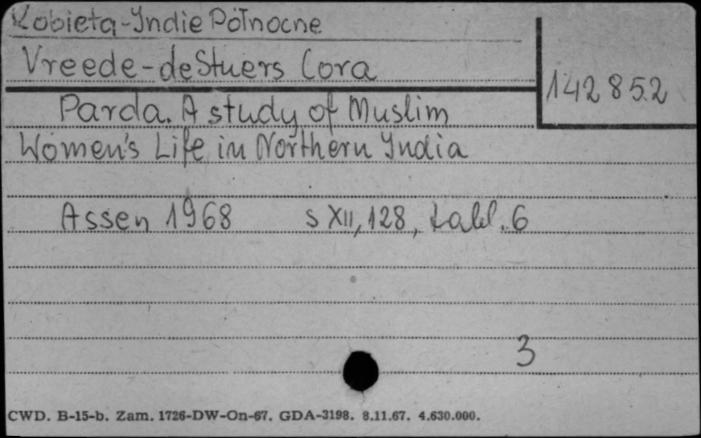 Kobieta-Indie Północne
Vreede-deStuers Cora
142852
Parda. A study of Muslim
Women's Life in Northern India
Assen 1968 s XII, 128, tabl. 6
3
CWD. B-15-b. Zam. 1726-DW-On-67. GDA-3198. 8.11.67. 4.630.000.